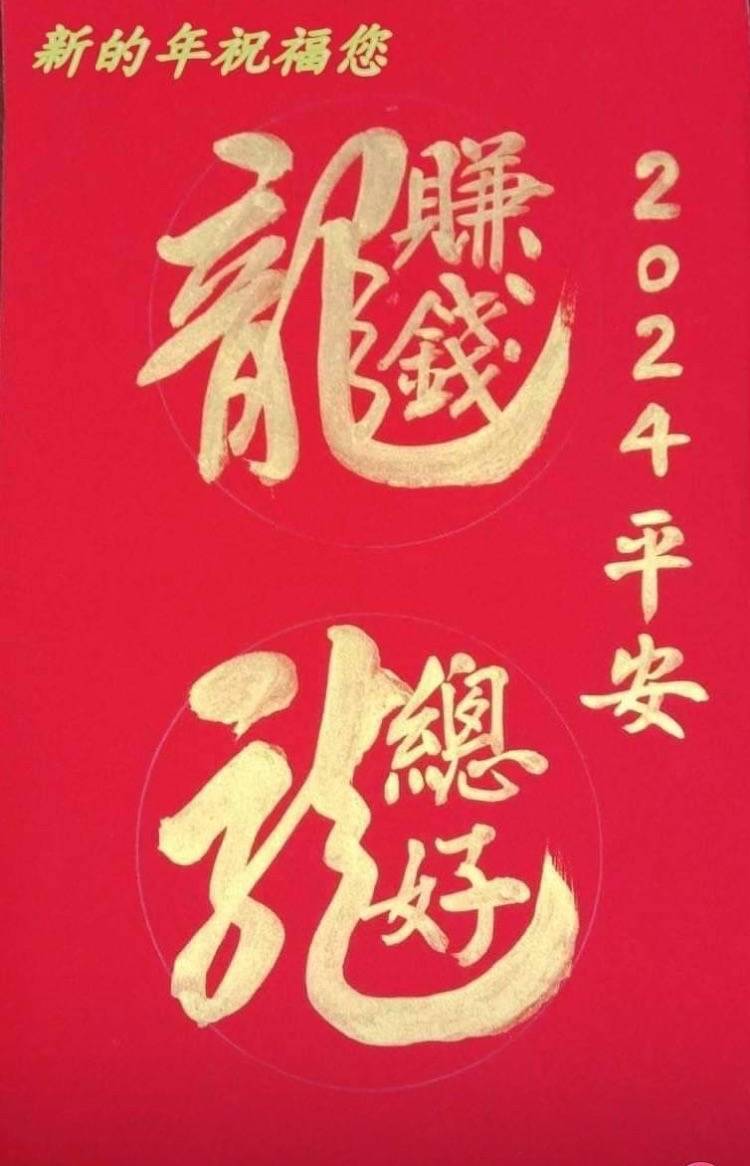 新的年祝福您
龍賺錢
龍總好
2024平安